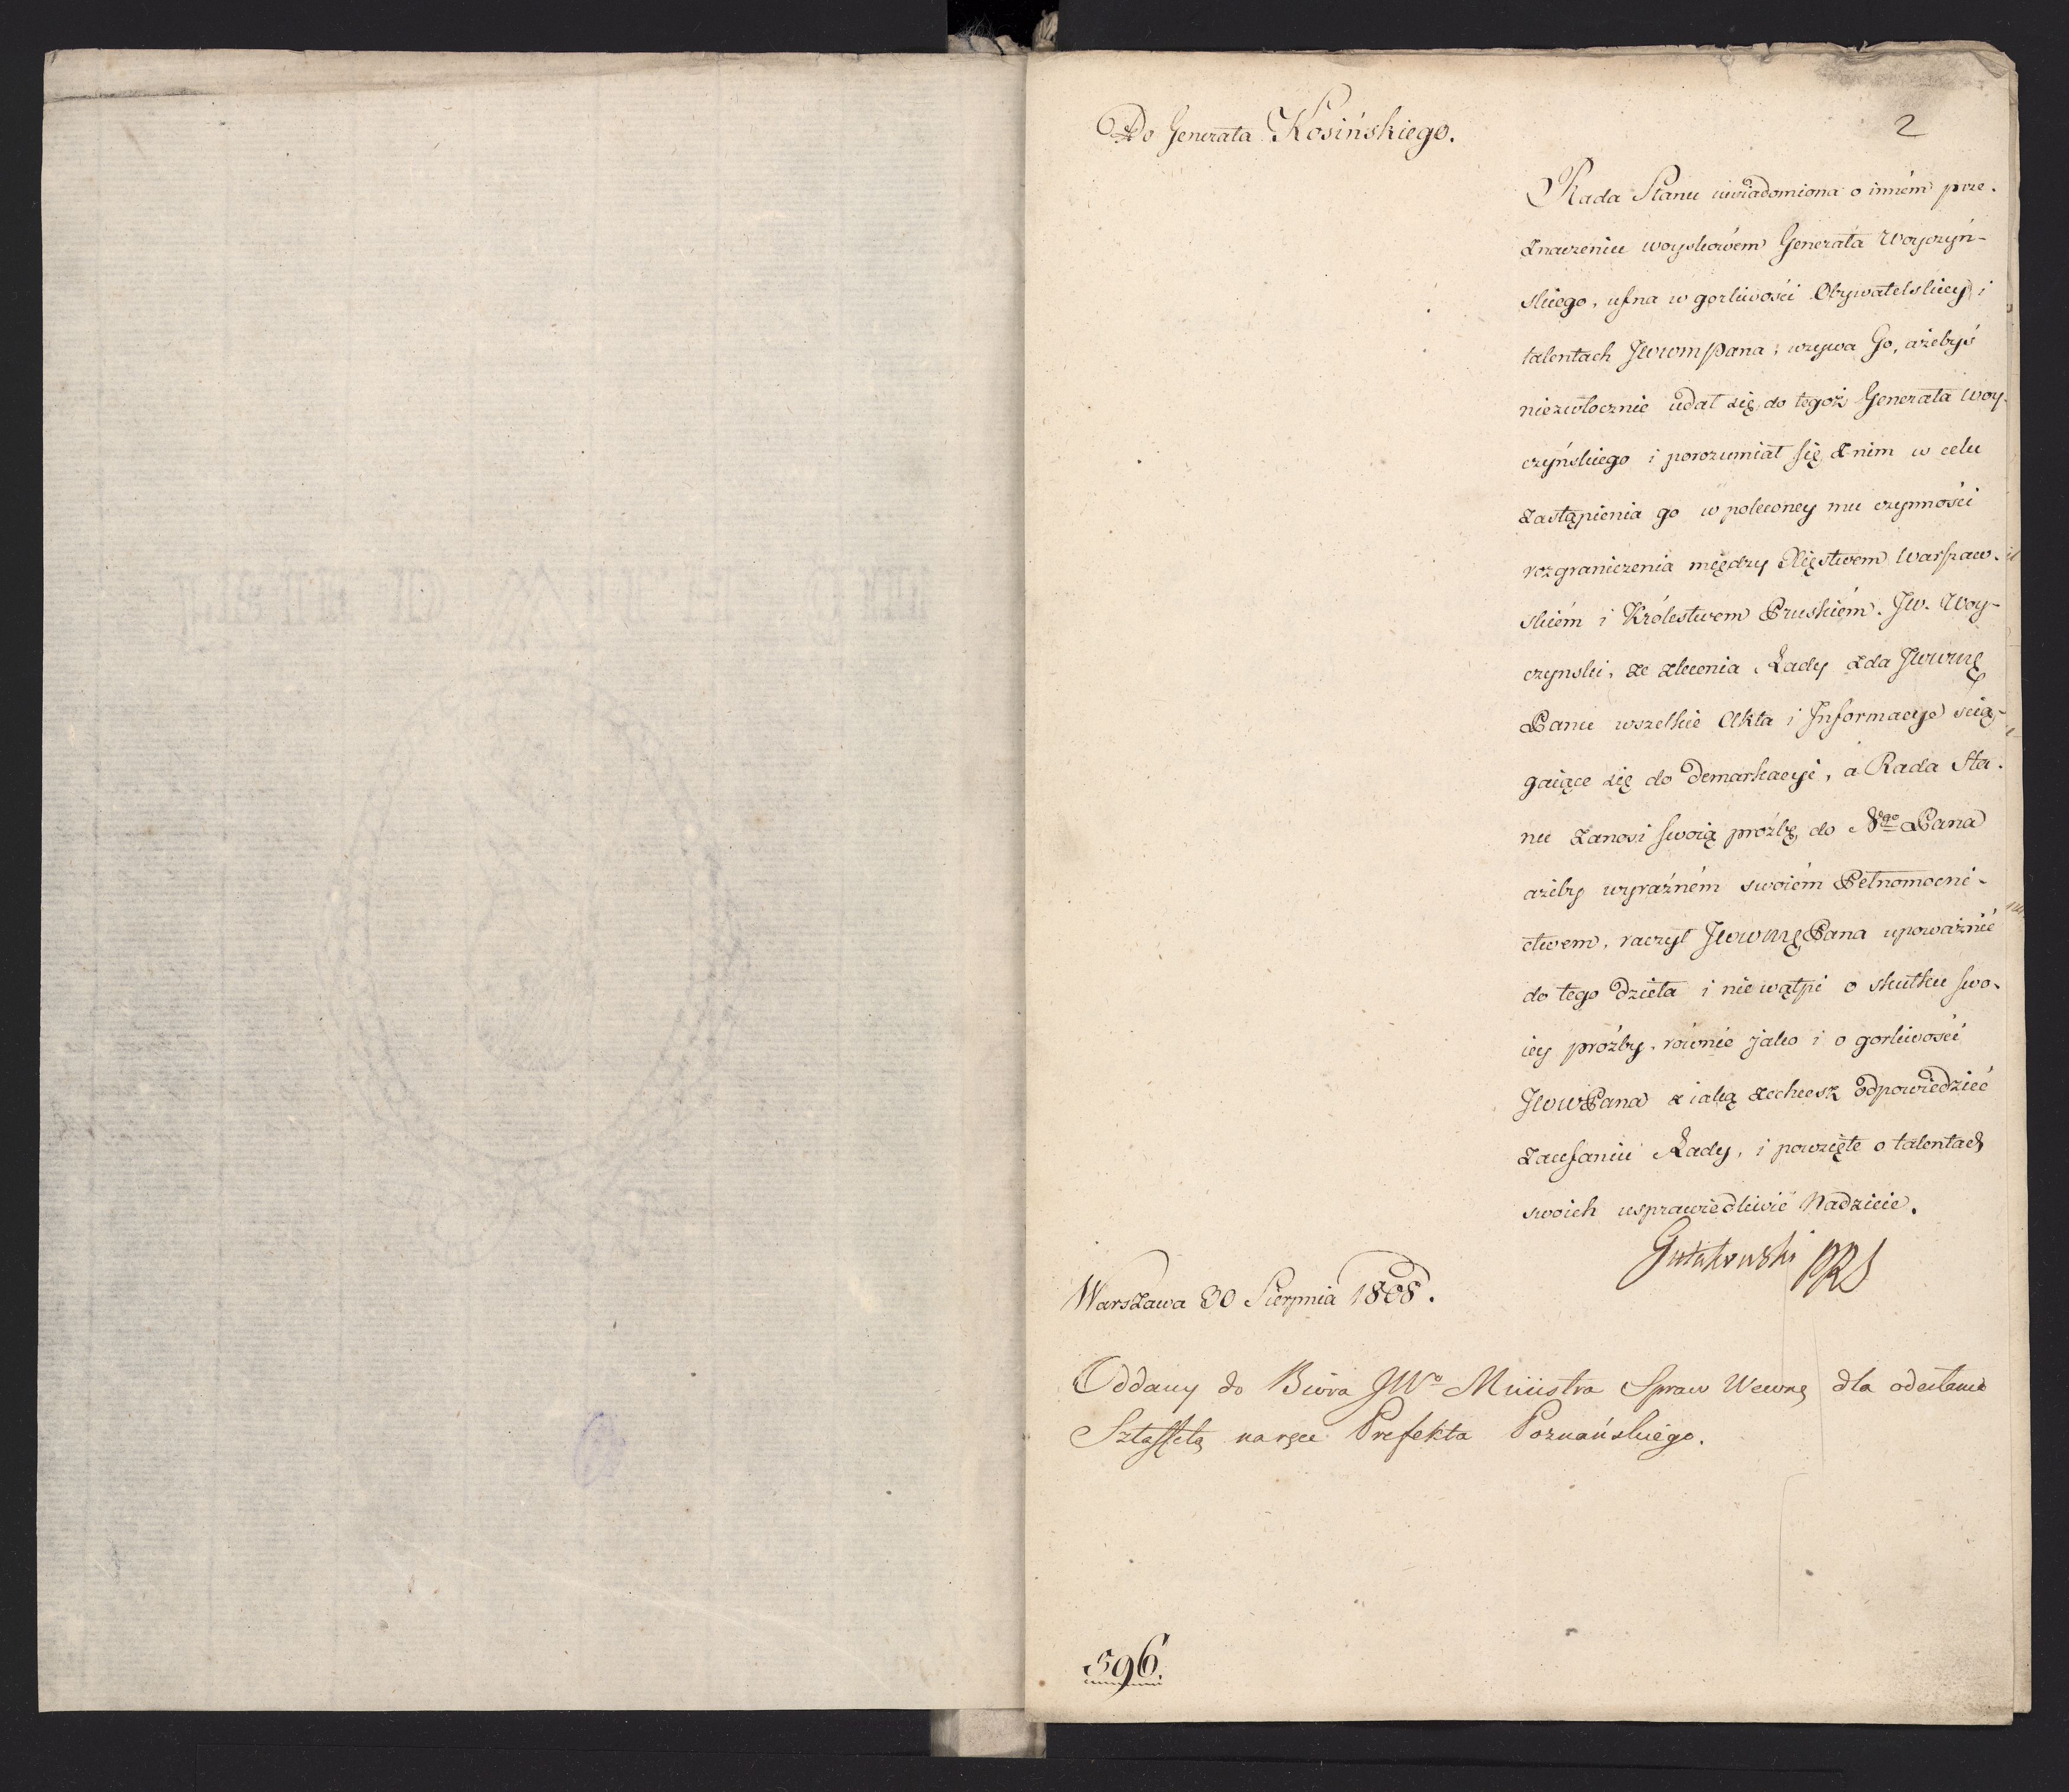 2
Do Generała Kosińskiego.
Rada Stanu uwiadomiona o inném prze-
znaczeniu woyskowém Generała Woyczyń-
skiego, ufna w gorliwości Obywatelskiey i
talentach JWWmPana; wzywa Go, ażebyś
niezwłocznie udał się do tegoż Generała Woy-
czyńskiego i porozumiał się z nim w celu
zastąpienia go w poleconey mu czynności
rozgraniczenia między Xięstwem Warszaw-
skiém i Królestwem Pruskiém. JW. Woy-
czynski, ze zlecenia Rady zda JWWmę
Panu wszelkie Akta i Informacye scią-
gaiące się do Demarkacyi, a Rada Sta-
nu zanosi swoią prożbę do Ngo Pana
ażeby wyraźném swoiém Pełnomocni-
ctwem, raczył JWWmę Pana upoważnić
do tego dzieła i nie wątpi o skutku swo-
iey próżby, równie jako i o gorliwości
JWWPana z iaką zechcesz odpowiedzieć
zaufaniu Rady, i powzięte o talentach
swoich usprawiedliwić Nadzieie.
Gutakowski PRS
Warszawa 30 Sierpnia 1808.
Oddany do Biora JWo Ministra Spraw Wewnę dla odesłania
Sztaffetą na ręce Prefekta Poznańskiego.
596.